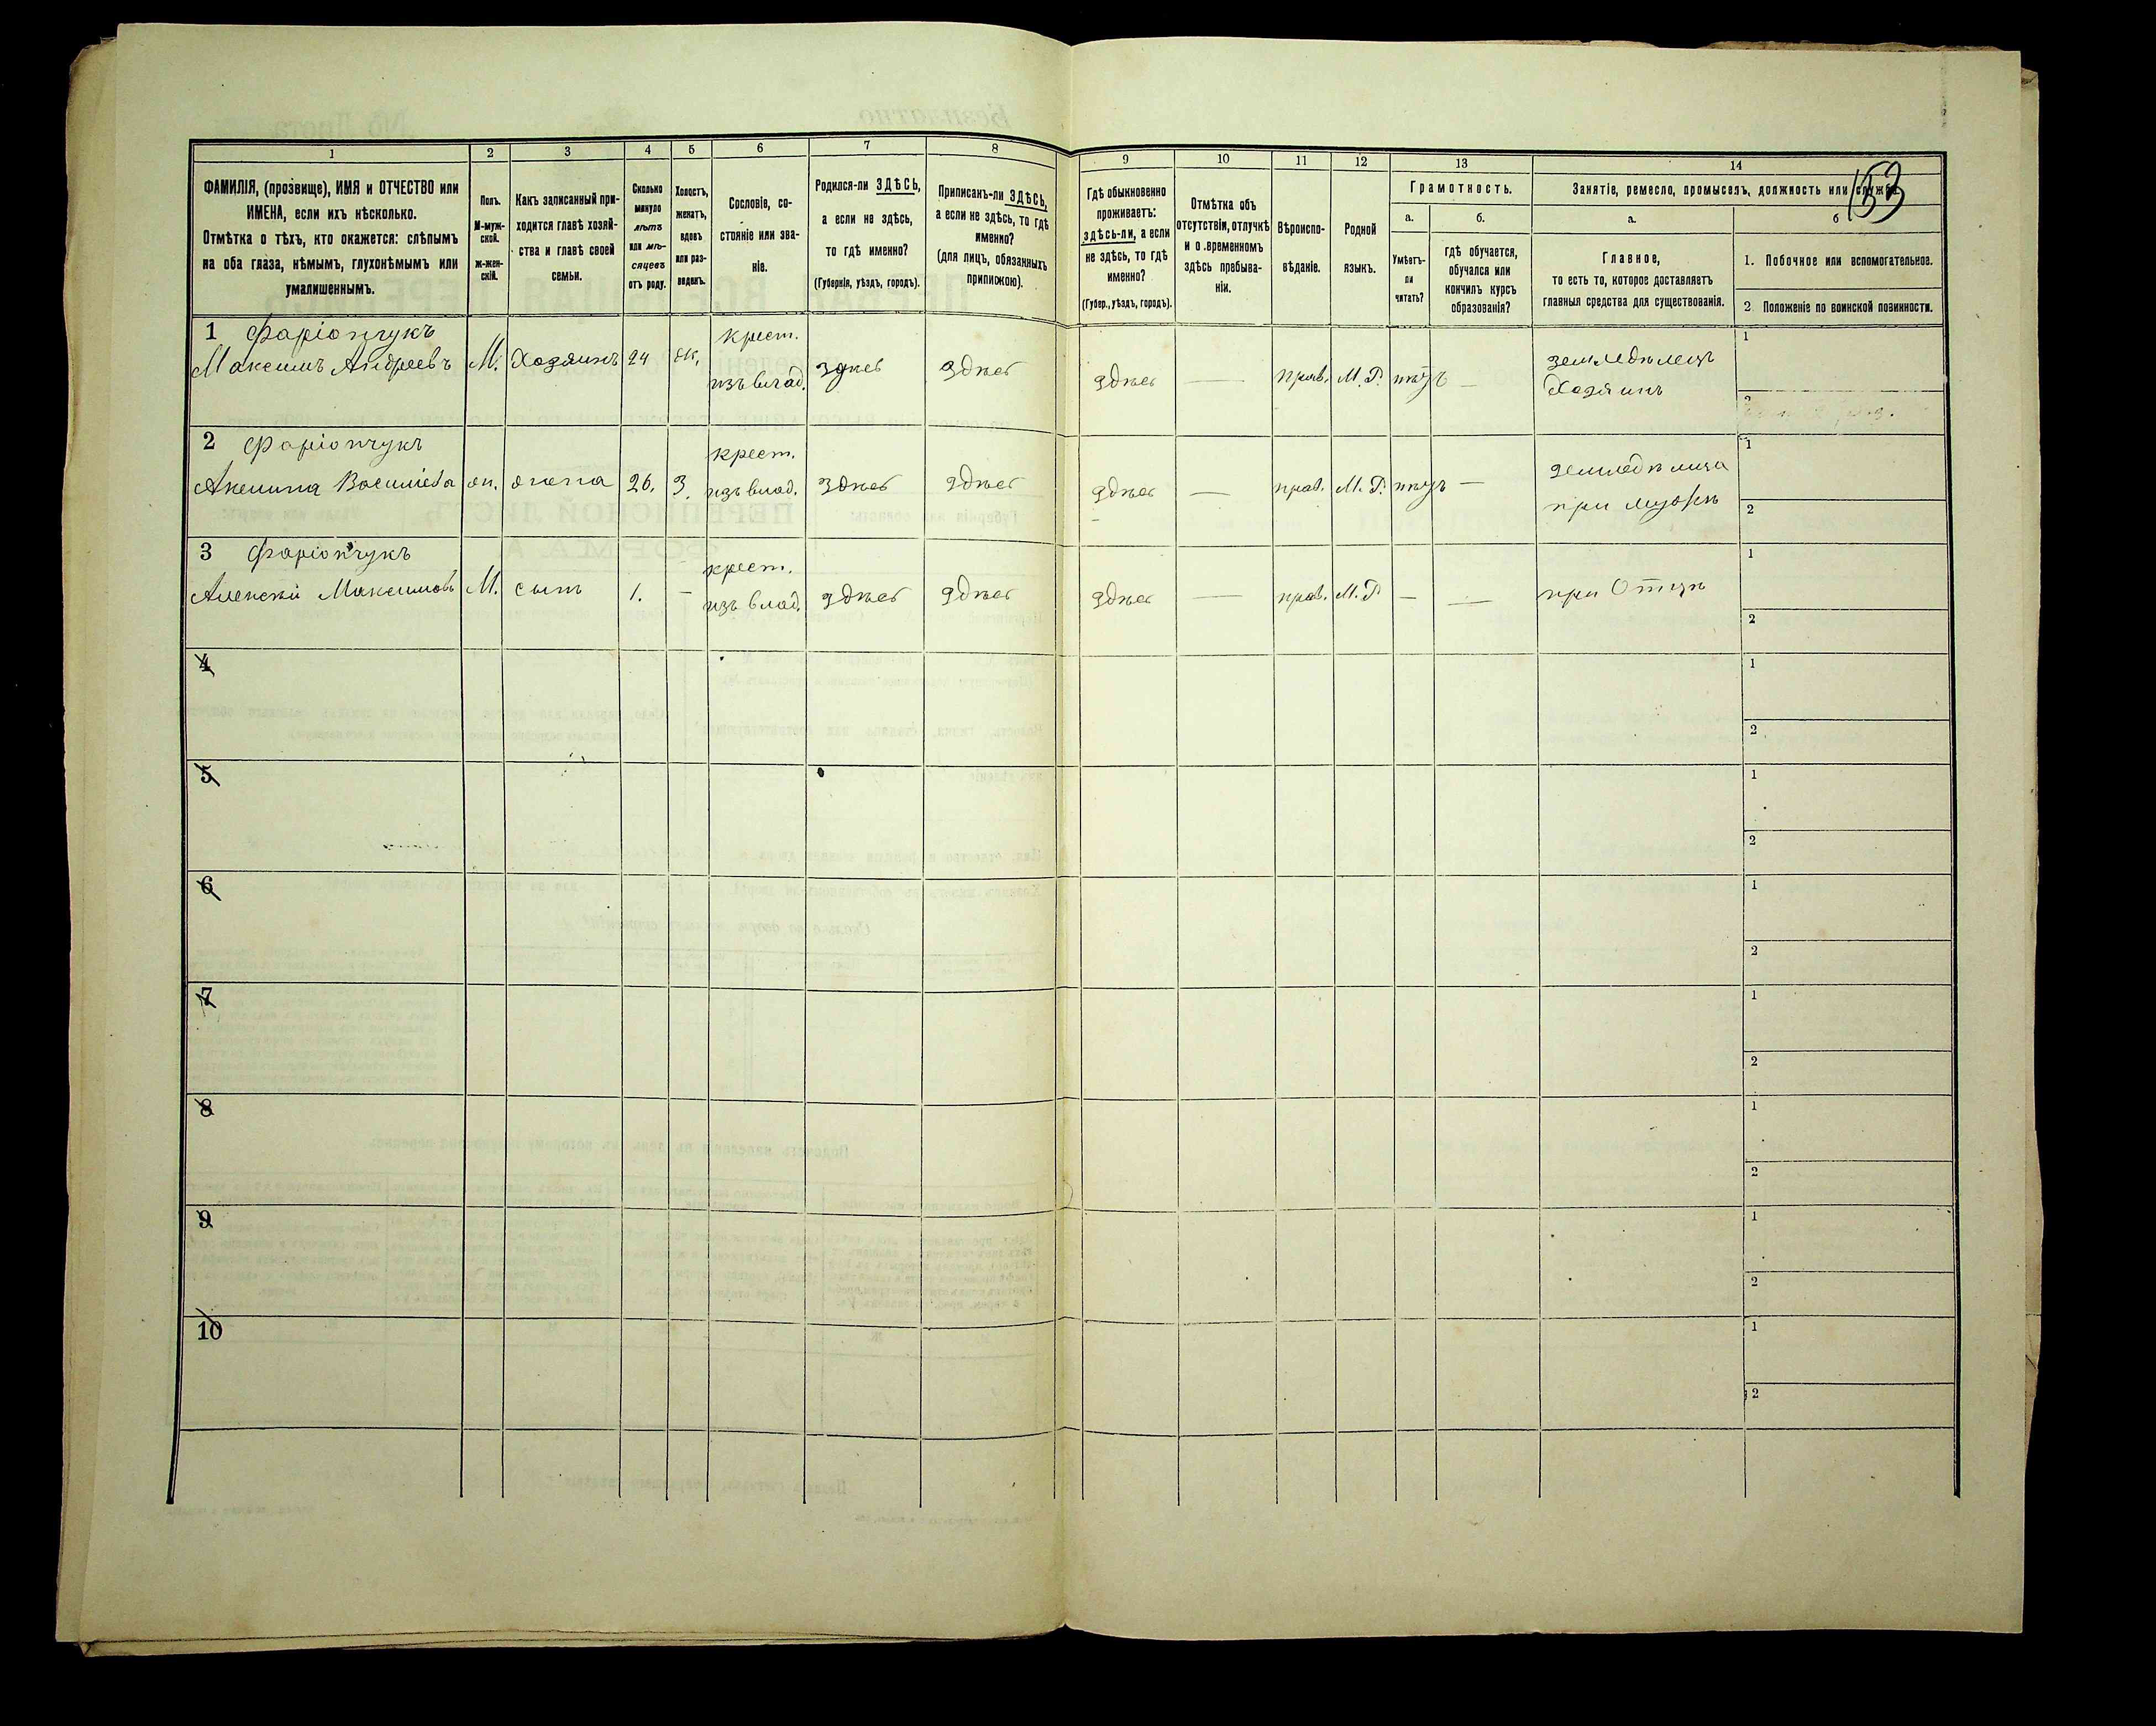 153
1 2 3 4 5 6 7 8 9 10 11 12 13 14
ФАМИЛІЯ, (прозвище), ИМЯ и ОТЧЕСТВО или
ИМЕНА, если ихъ нѣсколько.
Отмѣтка о тѣхъ, кто окажется: слѣпымъ
на оба глаза, нѣмымъ, глухонѣмымъ или
умалишеннымъ.
Полъ.
М-муж-
ской.
ж-жен-
скій.
Какъ записанный при-
ходится главѣ хозяй-
ства и главѣ своей
семьи.
Сколько
минуло
лѣтъ
или мѣ-
сяцевъ
отъ роду.
Холостъ,
женатъ,
вдовъ
или раз-
веденъ.
Сословіе, со-
стояніе или зва-
ніе.
Родился-ли ЗДѢСЬ,
а если не здѣсь,
то гдѣ именно?
(Губернія, уѣздъ, городъ).
Приписанъ-ли ЗДѢСЬ,
а если не здѣсь, то гдѣ
именно?
(для лицъ, обязанныхъ
припискою).
Гдѣ обыкновенно
проживаетъ:
здѣсь-ли, а если
не здѣсь, то гдѣ
именно?
(Губер., уѣздъ, городъ).
Отмѣтка объ
отсутствіи, отлучкѣ
и о временномъ
здѣсь пребыва-
ніи.
Вѣроиспо-
вѣданіе.
Родной
языкъ.
Грамотность.
а.
Умѣетъ-
ли
читать?
б.
гдѣ обучается,
обучался или
кончилъ курсъ
образованія?
Занятіе, ремесло, промыселъ, должность или служба.
а.
Главное,
то есть то, которое доставляетъ
главныя средства для существованія.
б
1. Побочное или вспомогательное.
2. Положеніе по воинской повинности.
1 Фаріончукъ крест.
Максимъ Андреевъ М. Хозяинъ 24 ж. изъ влад. Здѣсь Здѣсь здѣсь — прав. М. Р. нѣтъ — земледѣлецъ
Хозяинъ
1
2
2 Фаріончукъ крест.
Акилина Васильева ж. жена 26. З. изъ влад. Здѣсь здѣсь здѣсь — прав. М. Р. нѣтъ — земледѣлица
при мужѣ
1
2
3 Фаріончукъ крест.
Алексѣй Максимовъ М. сынъ 1. — изъ влад. здѣсь здѣсь здѣсь — прав. М. Р. — — при Отцѣ
1
2
4 1
2
5 1
2
6 1
2
7 1
2
8 1
2
9 1
2
10 1
2